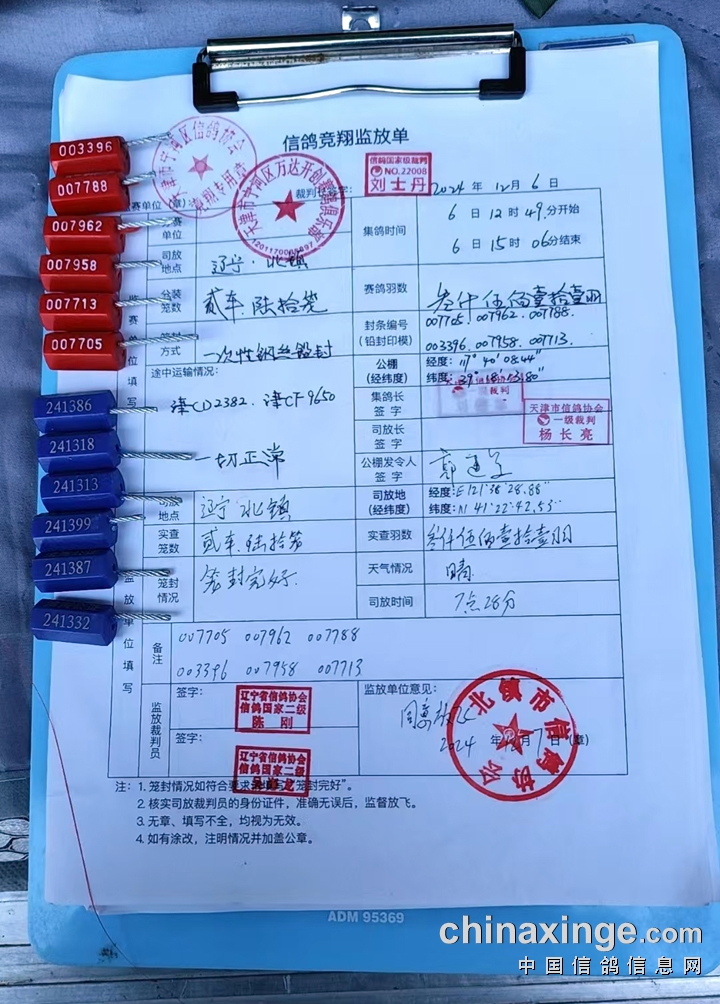 信鸽竞翔监放单
天津市宁河区信鸽协会
竞翔专用章
天津市宁河区万达开创赛鸽俱乐部
裁判长签字：
信鸽国家级裁判
NO.22008
刘士丹
2024年12月6日
003396
007788
007962
007958
007713
007705
241386
241318
241313
241399
241387
241332
集鸽时间
6日12时49分开始
6日15时06分结束
司放地点
辽宁·北镇
分装笼数
贰车.陆拾笼
赛鸽羽数
叁仟伍佰壹拾壹羽
封条编号（铅封印模）
007705.007962.007788.
003396.007958.007713.
方式
一次性钢丝铅封
公棚（经纬度）
经度：117°40′08.44″
纬度：
途中运输情况：
津CD2382.津CF9650
一切正常
集鸽长签字
司放长签字
天津市信鸽协会
一级裁判
杨长亮
公棚发令人签字
地点
辽宁·北镇
司放地（经纬度）
经度：E121°38′28.88″
纬度：N41°22′42.53″
实查笼数
贰车.陆拾笼
实查羽数
叁仟伍佰壹拾壹羽
笼封情况
笼封完好.
天气情况
晴
司放时间
7点28分
监放单位填写
备注
007705 007962 007788
003396 007958 007713
监放裁判员
签字：
辽宁省信鸽协会
信鸽国家二级
陈刚
签字：
辽宁省信鸽协会
信鸽国家二级
监放单位意见：
同意放飞
2024年12月7日（章）
北镇市信鸽协会
注：1. 笼封情况如符合要求 笼封完好”。
2. 核实司放裁判员的身份证件，准确无误后，监督放飞。
3. 无章、填写不全，均视为无效。
4. 如有涂改，注明情况并加盖公章。
ADM 95369
chinaxinge.com
中国信鸽信息网